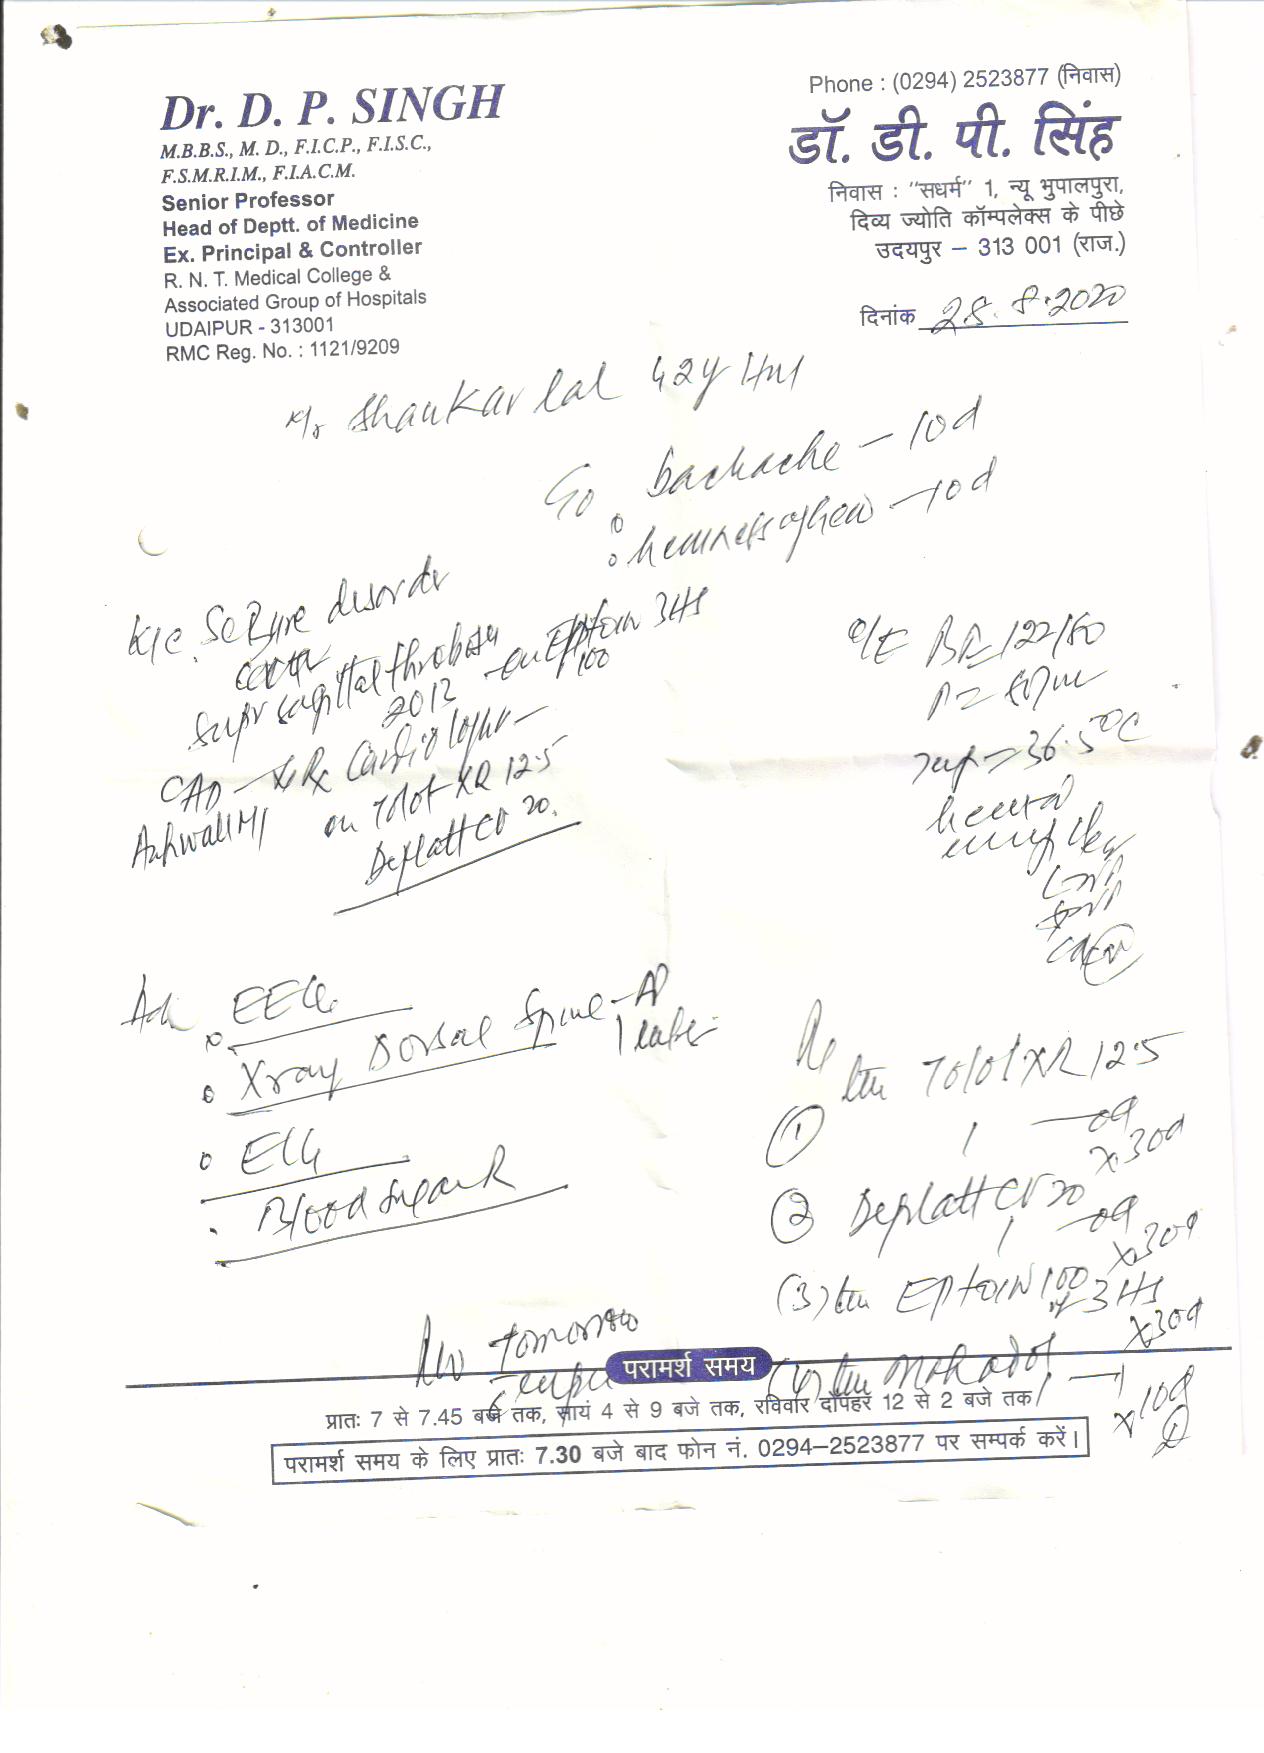 Dr. D. P. SINGH
M.B.B.S., M. D., F.I.C.P., F.I.S.C.,
F.S.M.R.I.M., F.I.A.C.M.
Senior Professor
Head of Deptt. of Medicine
Ex. Principal & Controller
R. N. T. Medical College &
Associated Group of Hospitals
UDAIPUR - 313001
RMC Reg. No. : 1121/9209
Phone : (0294) 2523877 (निवास)
डॉ. डी. पी. सिंह
निवास : "सधर्म" 1, न्यू भुपालपुरा,
दिव्य ज्योति कॉम्पलेक्स के पीछे
उदयपुर – 313 001 (राज.)
दिनांक 28.8.2020
Mr Shankar lal 42y
backache – 10d
– 10d
K/c Seizure disorder
sagittal thrombosis on Eptoin 3HS
2012 100
CAD – Rx Cardiologist –
Ant wall MI on Tolol XR 12.5
Deplatt CV 20
O/E BP 122/80
P =
Temp – 36.5°C
Adv
EEG
Xray Dorsal Spine – AP
Later
ECG
Blood Sugar R
Rx
Tolol XR 12.5
① 1 — od
x 30d
② Deplatt CV 20
1 — od
x 30d
(3) Eptoin 100
3 HS
x 30d
(4)
x 10d
tomorrow
परामर्श समय
प्रातः 7 से 7.45 बजे तक, सायं 4 से 9 बजे तक, रविवार दोपहर 12 से 2 बजे तक
परामर्श समय के लिए प्रातः 7.30 बजे बाद फोन नं. 0294–2523877 पर सम्पर्क करें।